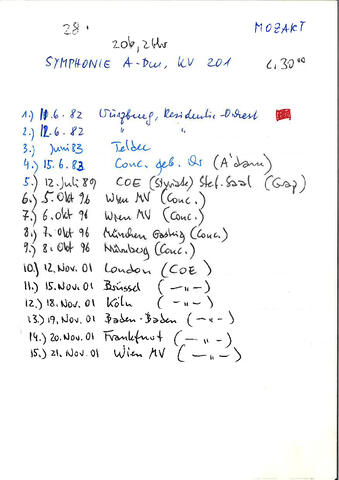 28. MOZART
20h, 2 Uhr
SYMPHONIE A-Dur, KV 201 c. 30°°
1.) 11.6.82 Würzburg, Residenz-Orchest
2.) 12.6.82 " "
3.) Juni 83 Teldec
4.) 15.6.83 Conc. geb. Or (A'dam)
5.) 12. Juli 89 COE (Styriate) Stef. Saal (Graz)
6.) 5. Okt 96 Wien MV (Conc.)
7.) 6. Okt 96 Wien MV (Conc.)
8.) 7. Okt 96 München Gasteig (Conc.)
9.) 8. Okt 96 Nürnberg (Conc.)
10.) 12. Nov. 01 London (COE)
11.) 15. Nov. 01 Brüssel (—"—)
12.) 18. Nov. 01 Köln (—"—)
13.) 19. Nov. 01 Baden-Baden (—"—)
14.) 20. Nov. 01 Frankfurt (—"—)
15.) 21. Nov. 01 Wien MV (—"—)